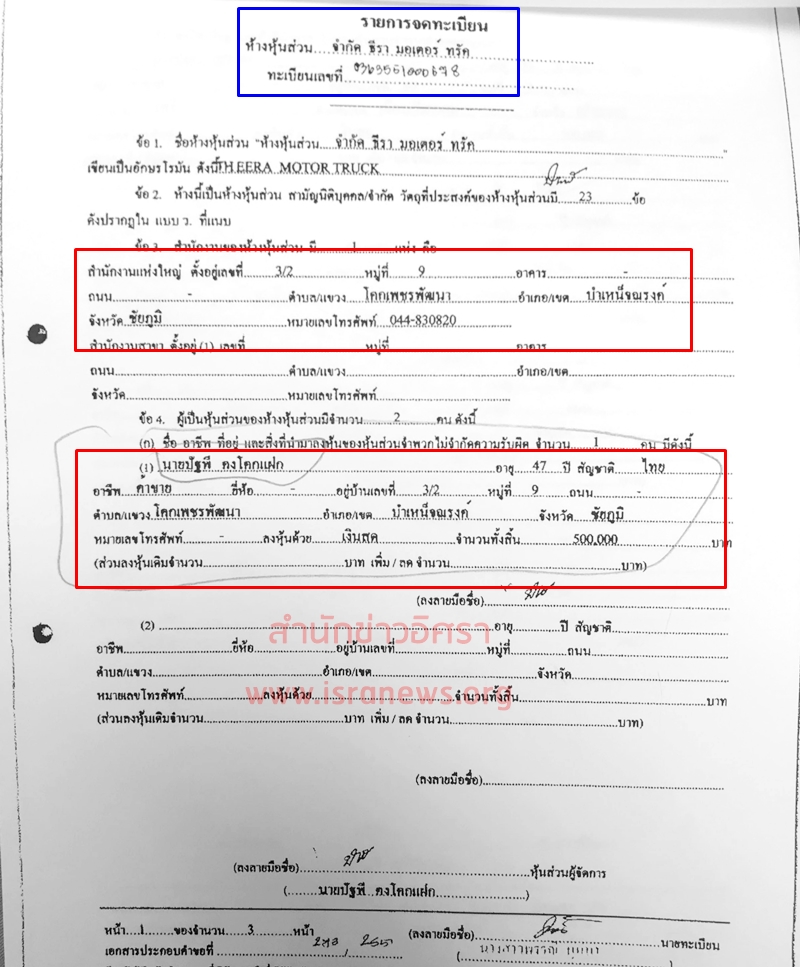 รายการจดทะเบียน
ห้างหุ้นส่วน....จำกัด ธีรา มอเตอร์ ทรัค
ทะเบียนเลขที่ 0363551000678
ข้อ 1. ชื่อห้างหุ้นส่วน "ห้างหุ้นส่วน....จำกัด ธีรา มอเตอร์ ทรัค"
เขียนเป็นอักษรโรมัน ดังนี้THEERA MOTOR TRUCK
ข้อ 2. ห้างนี้เป็นห้างหุ้นส่วน สามัญนิติบุคคล/จำกัด วัตถุที่ประสงค์ของห้างหุ้นส่วนมี 23 ข้อ
ดังปรากฏใน แบบ ว. ที่แนบ
ข้อ 3. สำนักงานของห้างหุ้นส่วน มี 1 แห่ง คือ
สำนักงานแห่งใหญ่ ตั้งอยู่เลขที่ 3/2 หมู่ที่ 9 อาคาร -
ถนน - ตำบล/แขวง โคกเพชรพัฒนา อำเภอ/เขต บำเหน็จณรงค์
จังหวัด ชัยภูมิ หมายเลขโทรศัพท์ 044-830820
สำนักงานสาขา ตั้งอยู่ (1) เลขที่ หมู่ที่ อาคาร
ถนน ตำบล/แขวง อำเภอ/เขต
จังหวัด หมายเลขโทรศัพท์
ข้อ 4. ผู้เป็นหุ้นส่วนของห้างหุ้นส่วนมีจำนวน 2 คน ดังนี้
(ก) ชื่อ อาชีพ ที่อยู่ และสิ่งที่นำมาลงหุ้นของหุ้นส่วนจำพวกไม่จำกัดความรับผิด จำนวน 1 คน มีดังนี้
(1) นายปัฐพี คงโคกแฝก อายุ 47 ปี สัญชาติ ไทย
อาชีพ ค้าขาย ยี่ห้อ - อยู่บ้านเลขที่ 3/2 หมู่ที่ 9 ถนน -
ตำบล/แขวง โคกเพชรพัฒนา อำเภอ/เขต บำเหน็จณรงค์ จังหวัด ชัยภูมิ
หมายเลขโทรศัพท์ - ลงหุ้นด้วย เงินสด จำนวนทั้งสิ้น 500,000 บาท
(ส่วนลงหุ้นเดิมจำนวน บาท เพิ่ม / ลด จำนวน บาท)
(ลงลายมือชื่อ)
สำนักข่าวอิศรา
(2) อายุ ปี สัญชาติ
อาชีพ ยี่ห้อ อยู่บ้านเลขที่ หมู่ที่ ถนน
ตำบล/แขวง อำเภอ/เขต จังหวัด
www.isranews.org
หมายเลขโทรศัพท์ ลงหุ้นด้วย จำนวนทั้งสิ้น บาท
(ส่วนลงหุ้นเดิมจำนวน บาท เพิ่ม / ลด จำนวน บาท)
(ลงลายมือชื่อ)
(ลงลายมือชื่อ) หุ้นส่วนผู้จัดการ
(นายปัฐพี คงโคกแฝก)
หน้า 1 ของจำนวน 3 หน้า (ลงลายมือชื่อ) นายทะเบียน
เอกสารประกอบคำขอที่